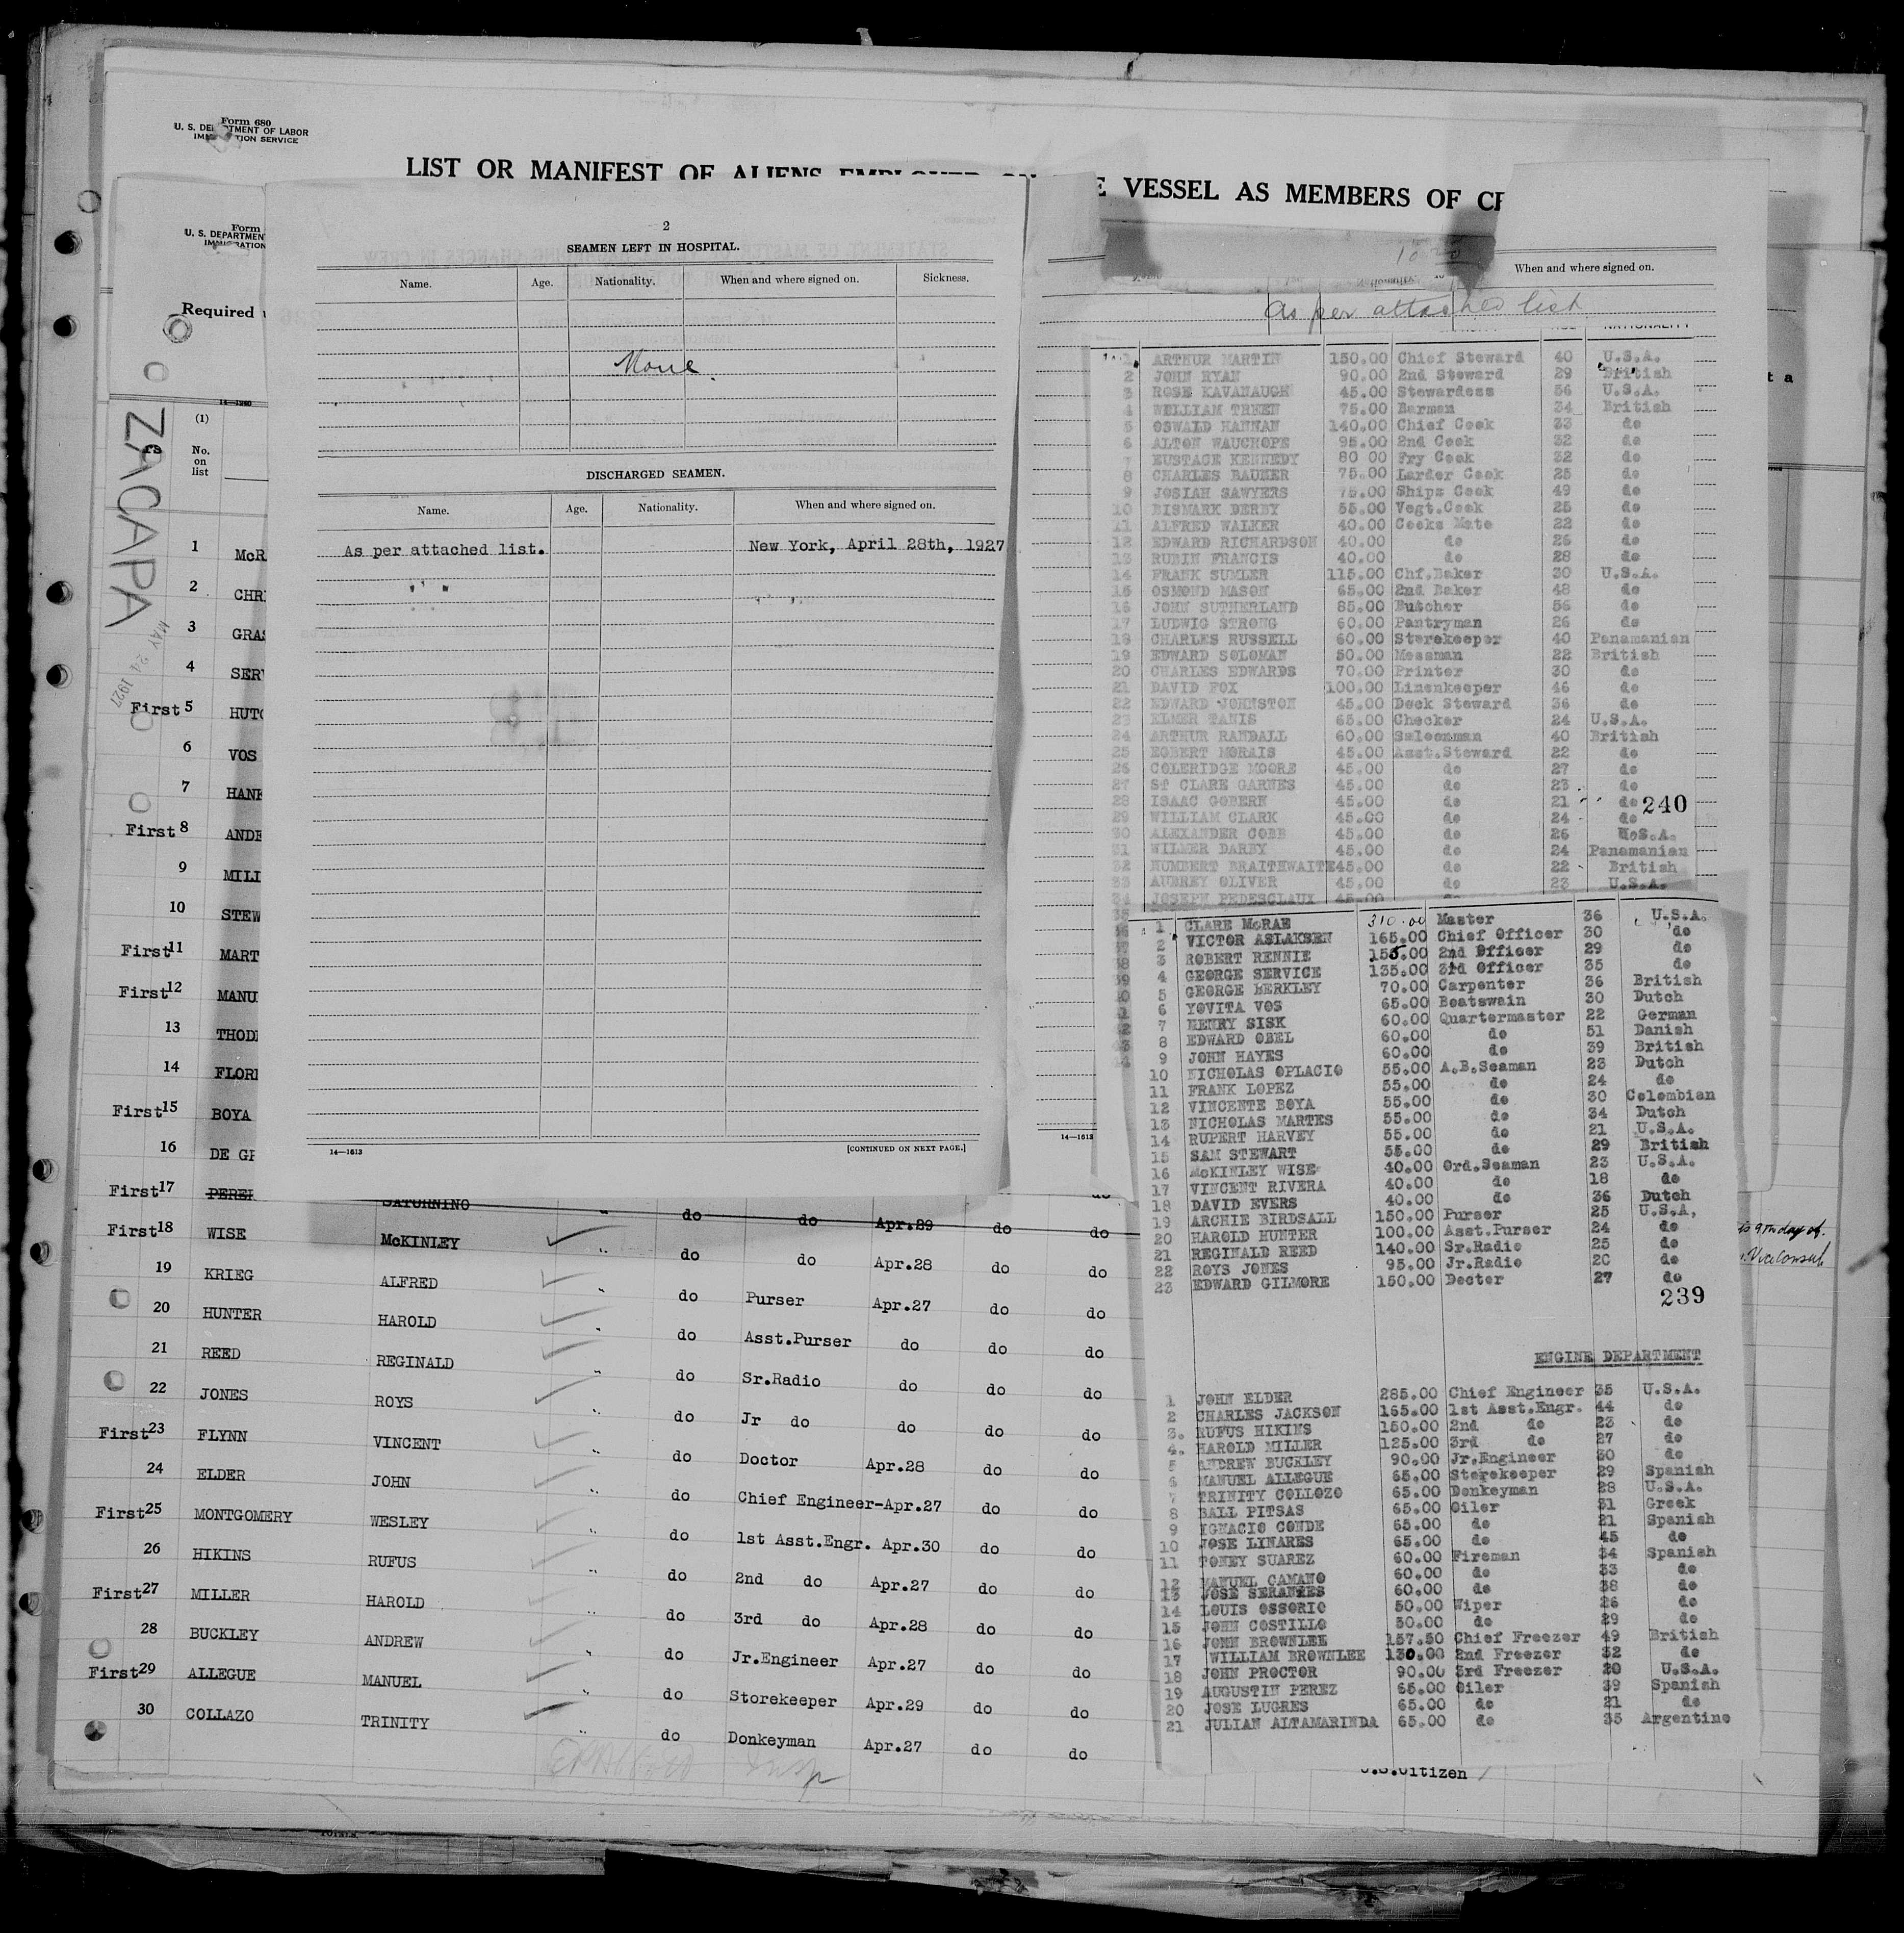 Form 680
U. S. DEPARTMENT OF LABOR
IMMIGRATION SERVICE
LIST OR MANIFEST OF ALIENS EMPLOYED ON THE VESSEL AS MEMBERS OF CR
Form
U. S. DEPARTMEN
IMMIGRATION
Required
14—1240
(1)
No.
on
list
ZACAPA
MAY 24 1927
1 McR
2 CHR
3 GRAS
4 SERV
First 5 HUTC
6 VOS
7 HANK
First 8 ANDE
9 MILL
10 STEW
First 11 MART
First 12 MANU
13 THOD
14 FLOR
First 15 BOYA
16 DE GR
First 17 PEREI SATURNINO do do Apr.29 do do
First 18 WISE McKINLEY do do Apr.28 do do
19 KRIEG ALFRED do Purser Apr.27 do do
20 HUNTER HAROLD do Asst.Purser do do do
21 REED REGINALD do Sr.Radio do do do
22 JONES ROYS do Jr do do do do
First 23 FLYNN VINCENT do Doctor Apr.28 do do
24 ELDER JOHN do Chief Engineer-Apr.27 do do
First 25 MONTGOMERY WESLEY do 1st Asst.Engr. Apr.30 do do
26 HIKINS RUFUS do 2nd do Apr.27 do do
First 27 MILLER HAROLD do 3rd do Apr.28 do do
28 BUCKLEY ANDREW do Jr.Engineer Apr.27 do do
First 29 ALLEGUE MANUEL do Storekeeper Apr.29 do do
30 COLLAZO TRINITY do Donkeyman Apr.27 do do
U.S.Citizen
2
SEAMEN LEFT IN HOSPITAL.
Name. Age. Nationality. When and where signed on. Sickness.
None.
DISCHARGED SEAMEN.
Name. Age. Nationality. When and where signed on.
As per attached list. New York, April 28th, 1927
14—1613 [CONTINUED ON NEXT PAGE.]
When and where signed on.
As per attached list
NATIONALITY
1 ARTHUR MARTIN 150.00 Chief Steward 40 U.S.A.
2 JOHN RYAN 90.00 2nd Steward 29 British
3 ROSE KAVANAUGH 45.00 Stewardess 56 U.S.A.
4 WELLIAM TREEN 75.00 Barman 34 British
5 OSWALD HANNAN 140.00 Chief Cook 33 do
6 ALTON WAUCHOPE 95.00 2nd Cook 32 do
7 EUSTACE KENNEDY 80 00 Fry Cook 32 do
8 CHARLES BAUKER 75.00 Larder Cook 25 do
9 JOSIAH SAWYERS 75.00 Ships Cook 49 do
10 BISMARK DERBY 55.00 Vegt.Cook 25 do
11 ALFRED WALKER 40.00 Cooks Mate 22 do
12 EDWARD RICHARDSON 40.00 do 26 do
13 RUBIN FRANCIS 40.00 do 28 do
14 FRANK SUMLER 115.00 Chf.Baker 30 U.S.A.
15 OSMOND MASON 65.00 2nd Baker 48 do
16 JOHN SUTHERLAND 85.00 Butcher 56 do
17 LUDWIG STRONG 60.00 Pantryman 26 do
18 CHARLES RUSSELL 60.00 Storekeeper 40 Panamanian
19 EDWARD SOLOMAN 50.00 Messman 22 British
20 CHARLES EDWARDS 70.00 Printer 30 do
21 DAVID FOX 100.00 Linenkeeper 46 do
22 EDWARD JOHNSTON 45.00 Deck Steward 36 do
23 ELMER TANIS 65.00 Checker 24 U.S.A.
24 ARTHUR RANDALL 60.00 Saloonman 40 British
25 EGBERT MORAIS 45.00 Asst.Steward 22 do
26 COLERIDGE MOORE 45.00 do 27 do
27 ST CLARE GARNES 45.00 do 23 do
28 ISAAC GOBERN 45.00 do 21 do
240
29 WILLIAM CLARK 45.00 do 24 do
30 ALEXANDER COBB 45.00 do 26 U.S.A.
31 WILMER DARBY 45.00 do 24 Panamanian
32 HUMBERT BRAITHWAITE 45.00 do 22 British
33 AUBREY OLIVER 45.00 do 23 U.S.A.
34 JOSEPH PEDESCLAUX 45.00 do
14—1613
1 CLARE McRAE 310.00 Master 36 U.S.A.
2 VICTOR ASLAKSEN 165.00 Chief Officer 30 do
3 ROBERT RENNIE 155.00 2nd Officer 29 do
4 GEORGE SERVICE 135.00 3rd Officer 35 do
5 GEORGE BERKLEY 70.00 Carpenter 36 British
6 YOVITA VOS 65.00 Boatswain 30 Dutch
7 HENRY SISK 60.00 Quartermaster 22 German
8 EDWARD OBEL 60.00 do 51 Danish
9 JOHN HAYES 60.00 do 39 British
10 NICHOLAS OPLACIO 55.00 A.B.Seaman 23 Dutch
11 FRANK LOPEZ 55.00 do 24 do
12 VINCENTE BOYA 55.00 do 30 Colombian
13 NICHOLAS MARTES 55.00 do 34 Dutch
14 RUPERT HARVEY 55.00 do 21 U.S.A.
15 SAM STEWART 55.00 do 29 British
16 McKINLEY WISE 40.00 Ord.Seaman 23 U.S.A.
17 VINCENT RIVERA 40.00 do 18 do
18 DAVID EVERS 40.00 do 36 Dutch
19 ARCHIE BIRDSALL 150.00 Purser 25 U.S.A,
20 HAROLD HUNTER 100.00 Asst.Purser 24 do
21 REGINALD REED 140.00 Sr.Radio 25 do
22 ROYS JONES 95.00 Jr.Radio 20 do
23 EDWARD GILMORE 150.00 Docter 27 do
239
ENGINE DEPARTMENT
1 JOHN ELDER 285.00 Chief Engineer 35 U.S.A.
2 CHARLES JACKSON 165.00 1st Asst.Engr. 44 do
3. RUFUS HIKINS 150.00 2nd do 23 do
4. HAROLD MILLER 125.00 3rd do 27 do
5 ANDREW BUCKLEY 90.00 Jr.Engineer 30 do
6 MANUEL ALLEGUE 65.00 Storekeeper 29 Spanish
7 TRINITY COLLOZO 65.00 Donkeyman 28 U.S.A.
8 BALL PITSAS 65.00 Oiler 31 Greek
9 IGNACIO CONDE 65.00 do 21 Spanish
10 JOSE LINARES 65.00 do 45 do
11 TONEY SUAREZ 60.00 Fireman 34 Spanish
12 MANUEL CAMANO 60.00 do 33 do
13 JOSE SERANTES 60.00 do 38 do
14 LOUIS OSSORIO 50.00 Wiper 26 do
15 JOHN COSTILLO 50.00 do 29 do
16 JOHN BROWNLEE 157.50 Chief Freezer 49 British
17 WILLIAM BROWNLEE 130.00 2nd Freezer 32 do
18 JOHN PROCTOR 90.00 3rd Freezer 20 U.S.A.
19 AUGUSTIN PEREZ 65.00 Oiler 39 Spanish
20 JOSE LUGRES 65.00 do 21 do
21 JULIAN ALTAMARINDA 65.00 do 35 Argentine